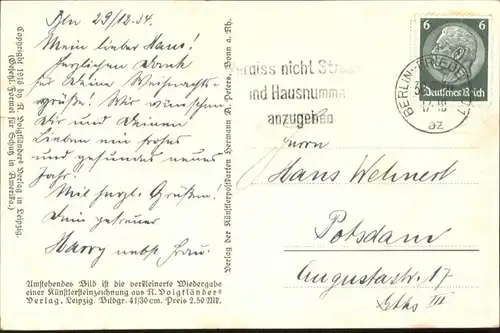 Bln 29/12.34.
Mein lieber Hans!
Herzlichen Dank
für Deine Weihnachts-
grüße! Wir wünschen
Dir und Deinen
Lieben ein frohes
und gesundes neues
Jahr!
Mit herzl. Grüßen!
Dein getreuer
Harry nebst Frau.
Umstehendes Bild ist die verkleinerte Wiedergabe
einer Künstlersteinzeichnung aus R. Voigtländers
Verlag, Leipzig. Bildgr. 41/30 cm. Preis 2.50 Mk.
Copyright 1916 by R. Voigtländers Verlag in Leipzig.
(Gesetzl. Formel für Schutz in Amerika.)
Verlag der Künstlerpostkarten Hermann A. Peters, Bonn a. Rh.
ergiss nicht Straß
und Hausnumme
anzugeben
6 6
Deutsches Reich
BERLIN-FRIEDENAU 1
az
Herrn
Hans Wehnert
Potsdam
Augustastr. 17
Gths III